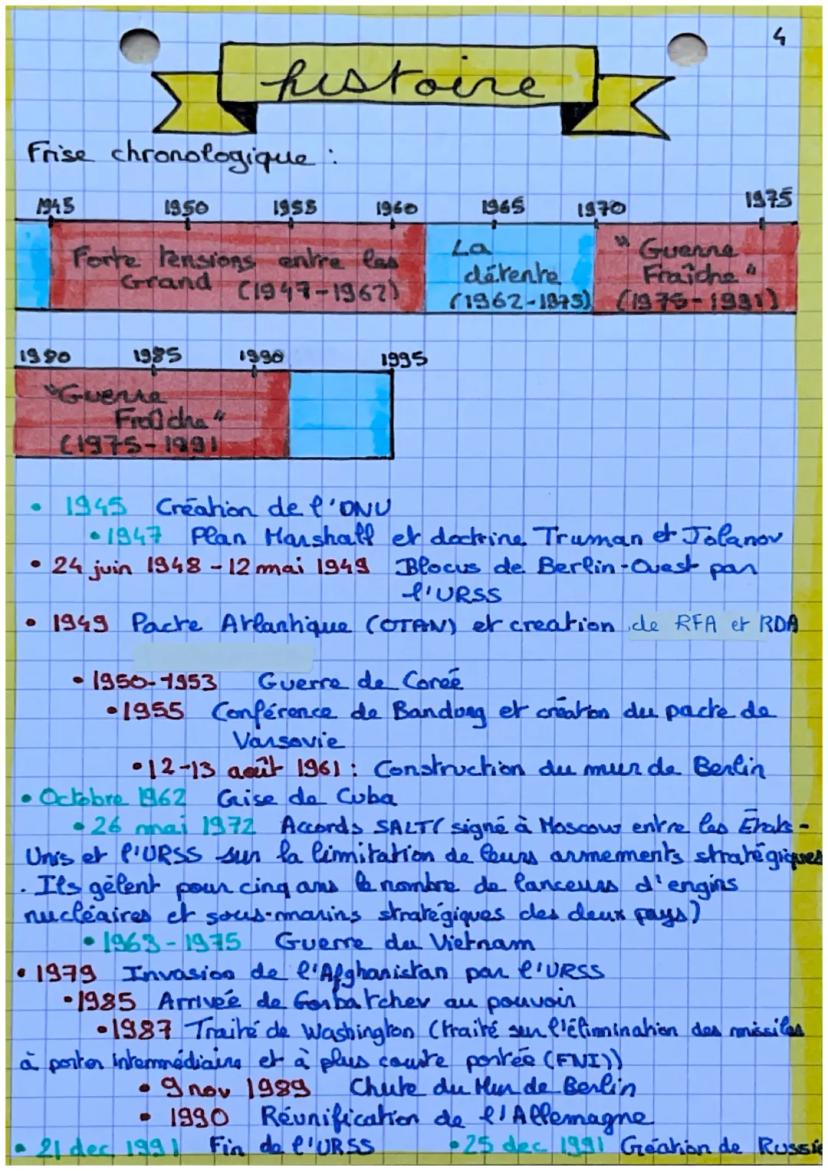 4
histoire
Frise chronologique :
1945 1950 1955 1960 1965 1970 1975
Forte tensions entre les Grand (1947-1962)
La détente (1962-1975)
" Guerre Fraîche " (1975-1991)
1980 1985 1990 1995
"Guerre Fraîche" (1975-1991
• 1945 Création de l'ONU
• 1947 Plan Marshall et doctrine Truman et Jolanov
• 24 juin 1948 - 12 mai 1949 Blocus de Berlin-Ouest par
l'URSS
• 1949 Pacte Atlantique (OTAN) et creation de RFA et RDA
• 1950-1953 Guerre de Coreé
• 1955 Conférence de Bandung et création du pacte de
Varsovie
• 12-13 août 1961 : Construction du mur de Berlin
• Octobre 1962 Crise de Cuba
• 26 mai 1972 Accords SALT( signé à Moscow entre les États-
Unis et l'URSS sur la limitation de leurs armements stratégiques
. Ils gèlent pour cinq ans le nombre de lanceurs d'engins
nucléaires et sous-marins stratégiques des deux pays)
• 1963-1975 Guerre du Vietnam
• 1979 Invasion de l'Afghanistan par l'URSS
• 1985 Arrivée de Gorbatchev au pouvoir
• 1987 Traité de Washington (traité sur l'élimination des missiles
à porter intermédiaire et à plus courte portée (FNI))
• 9 nov 1989 Chute du Mur de Berlin
• 1990 Réunification de l'Allemagne
• 21 dec 1991 Fin de l'URSS • 25 dec 1991 Création de Russie